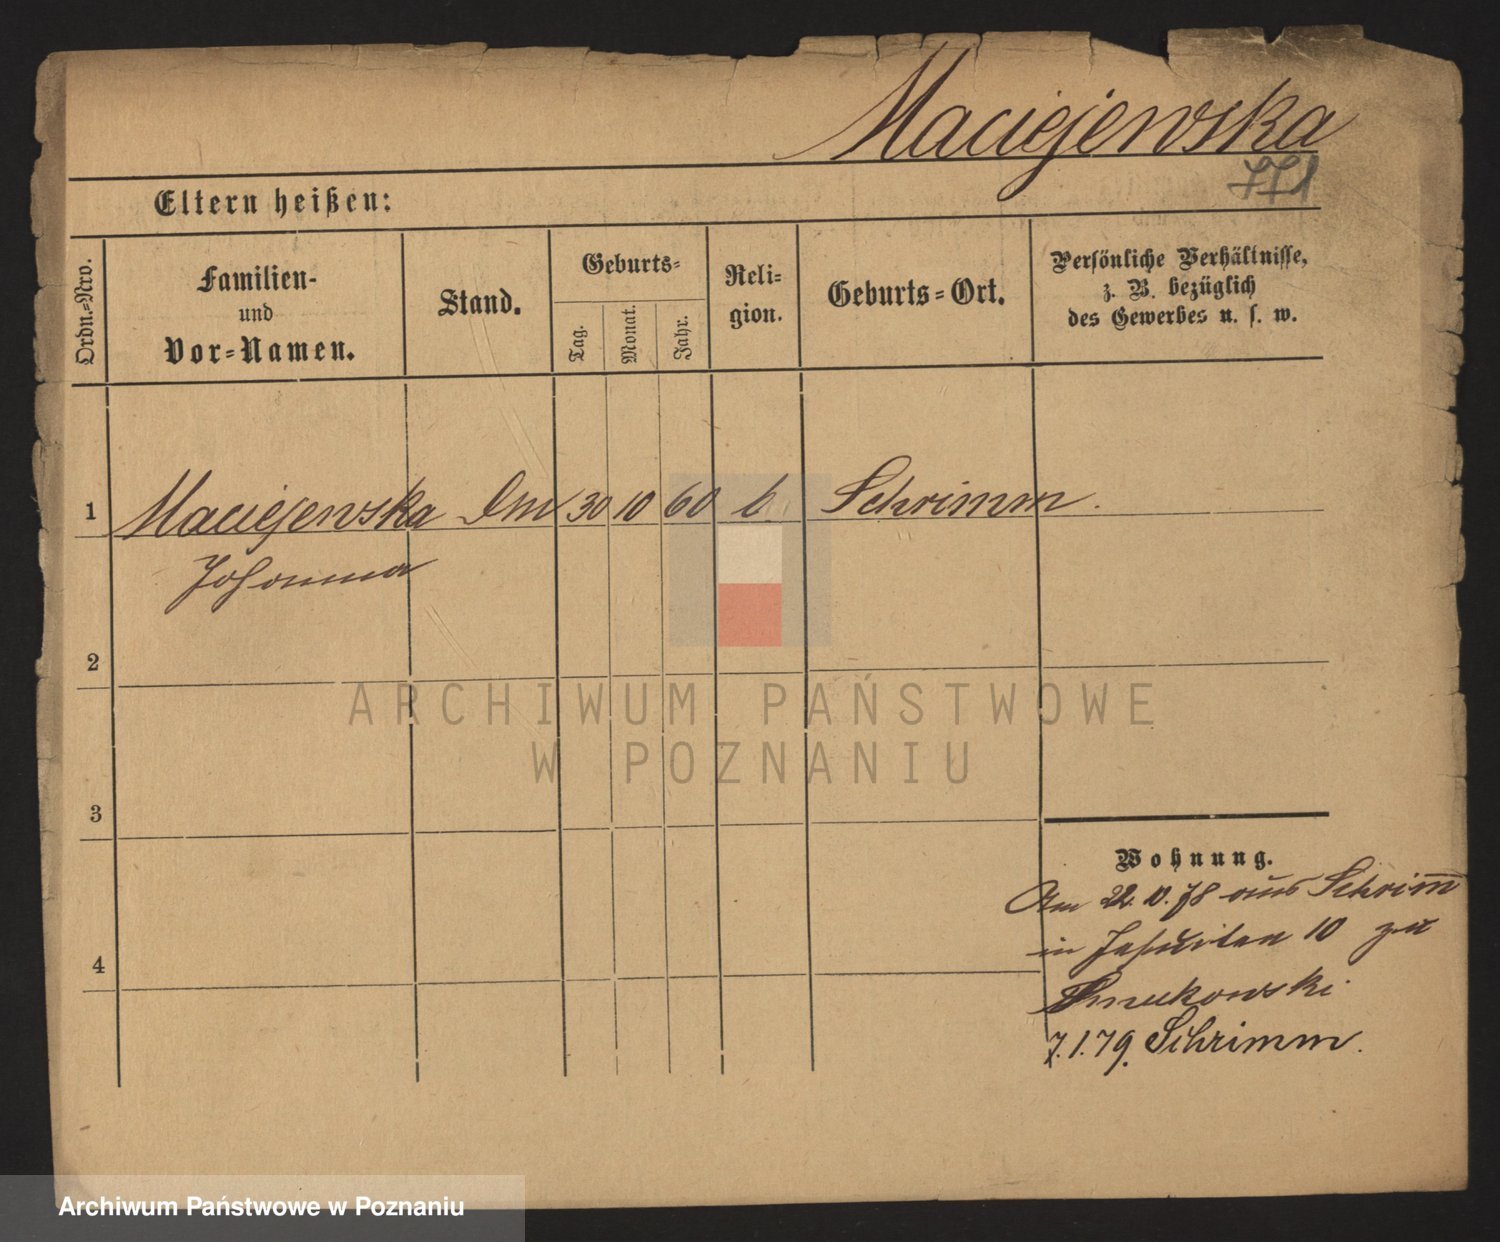 Maciejewska
771
Eltern heißen:
Ordn.=Nro.
Familien-
und
Vor=Namen.
Stand.
Geburts=
Tag.
Monat.
Jahr.
Reli=
gion.
Geburts=Ort.
Persönliche Verhältnisse,
z. B. bezüglich
des Gewerbes u. s. w.
1 Maciejewska 30 10 60 Schrimm.
Johanna
2
3
4
Wohnung.
Am 22. 10. 78 aus Schrim̅
in Jesuiten 10 zu
7.1.79. Schrimm.
ARCHIWUM PAŃSTWOWE
W POZNANIU
Archiwum Państwowe w Poznaniu